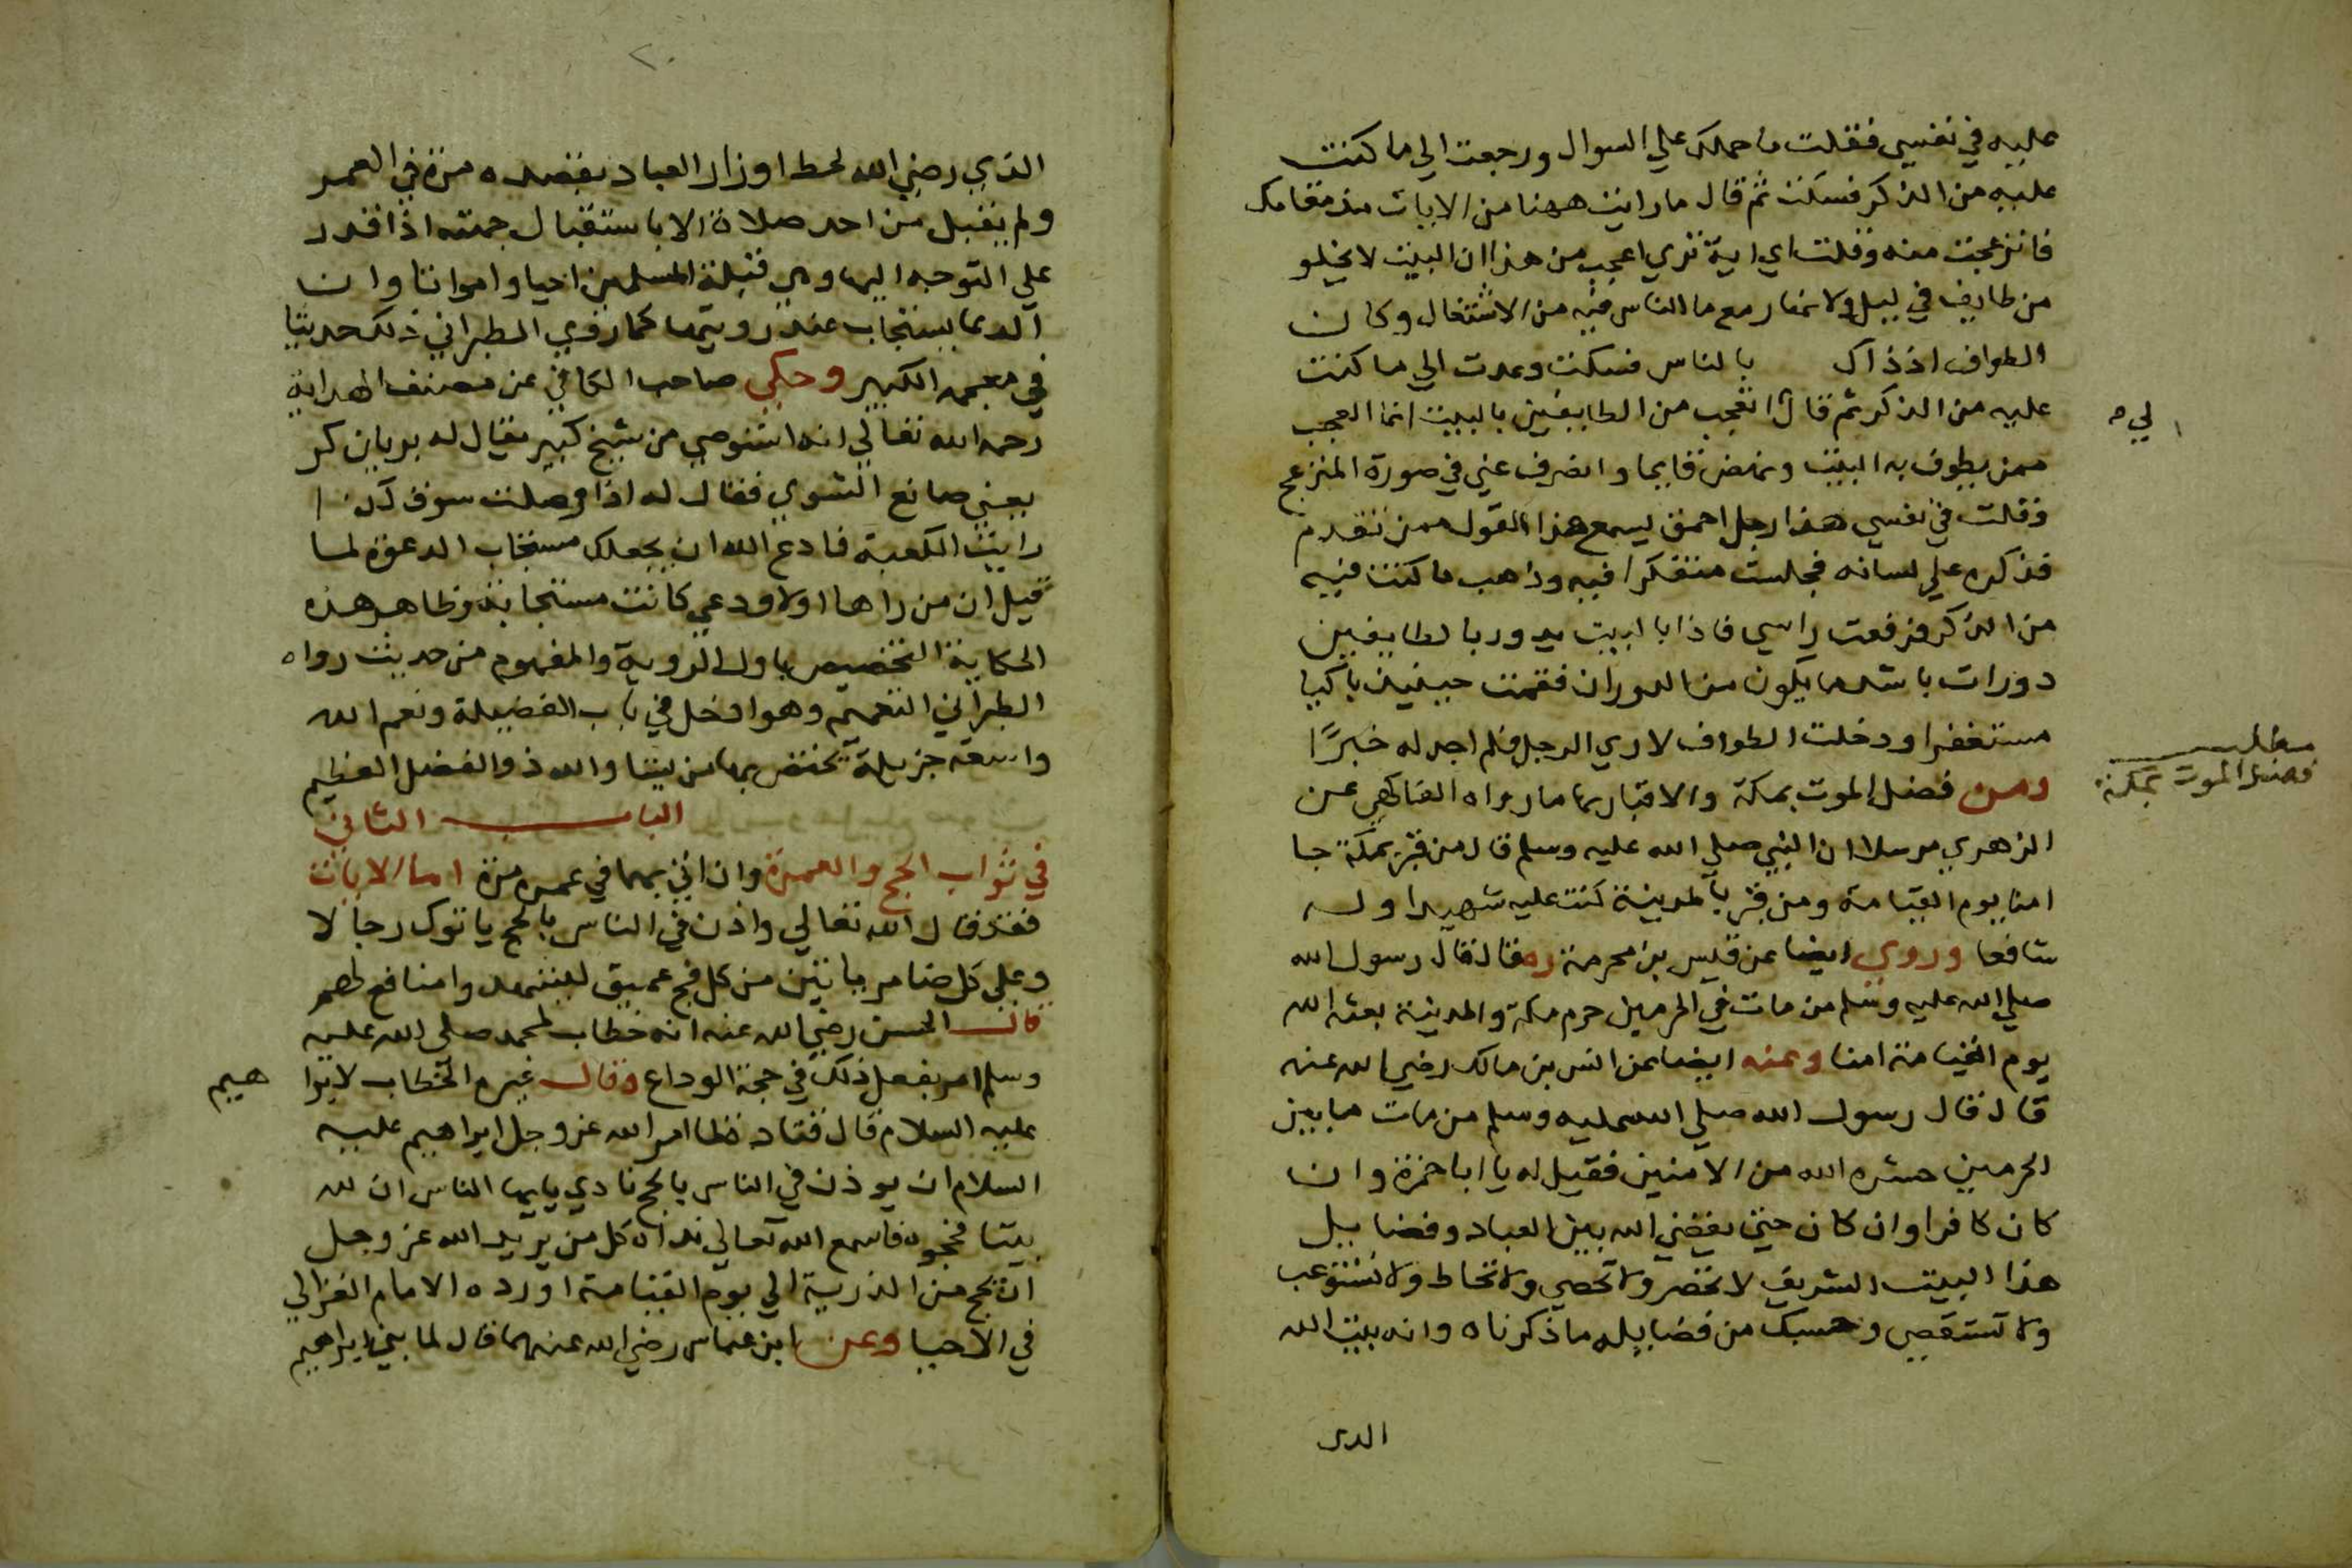 عليه في نفسي فقلت ما حملك علي السوال ورجعت الي ما كنت
عليه من الذكر فسكت ثم قال ما رايت ههنا من الايات منذ مقامك
فانزعجت منه وقلت اي اية تري اعجب من هذا ان البيت لا يخلو
من طايف في ليل ولا نهار مع ما الناس فيه من الاشتغال وكان
الطواف اذ ذاك بالناس فسكت وعدت الي ما كنت
عليه من الذكر ثم قال اتعجب من الطايفين بالبيت انما العجب
لي
ممن يطوف به البيت ونهض قايما وانصرف عني في صورة المنزعج
وقلت في نفسي هذا رجل احمق ليسمع هذا القول ممن تقدم
فذكره علي لسانه فجلست متفكرا فيه وذهب ما كنت فيه
من الذكر فرفعت راسي فاذا بالبيت يدور بالطايفين
دورات باشد ما يكون من الدوران فقمت حينيذ باكيا
مستغفرا ودخلت الطواف لاري الرجل فلم اجد له خبرًا
مطلب
فضل الموت بمكة
ومن فضل الموت بمكة والاقبار بها ما رواه الفاكهي عن
الزهري مرسلا ان النبي صلي الله عليه وسلم قال من قبر بمكة جا
امنا يوم القيامة ومن قبر بالمدينة كنت عليه شهيدا وله
شافعا وروي ايضا عن قيس بن محرمة ره قال قال رسول الله
صلي الله عليه وسلم من مات في الحرمين حرم مكة والمدينة بعثه الله
يوم القيامة امنا وعنه ايضا عن انس بن مالك رضي الله عنه
قال قال رسول الله صلي الله عليه وسلم من مات ما بين
الحرمين حشره الله من الامنين فقيل له يا ابا حمزة وان
كان كافرا وان كان حتى يقضي الله بين العباد وفضايل
هذا البيت الشريف لا تحصر ولا تحصي ولا تحاط ولا تستوعب
ولا تستقصي وحسبك من فضايله ما ذكرناه وانه بيت الله
الدى
٢٠
الذي رضي الله لحط اوزار العباد بقصده مرة في العمر
ولم يقبل من احد صلاة الا باستقبال جهته اذا قدر
علي التوجه اليها وهي قبلة المسلمين احيا وامواتا وان
الدعا يستجاب عند رويتها كما روي الطبراني ذلك حديثا
في معجمه الكبير وحكي صاحب الكافي عن مصنف الهداية
رحمه الله تعالي انه استوصي من شيخ كبير يقال له بريان كر
يعني صانع الشوي فقال له اذا وصلت سوف
رايت الكعبة فادع الله ان يجعلك مستجاب الدعوة لما
قيل ان من راها اولا ودعي كانت مستجابة وظاهر هذه
الحكاية التخصيص باول الروية والمفهوم من حديث رواه
الطبراني التعميم وهو ادخل في باب الفضيلة ونعم الله
واسعة جزيلة يختص بها من يشا والله ذو الفضل العظيم
الباب الثاني
في ثواب الحج والعمرة وان اتي بهما في عمره مرة اما الايات
فقد قال الله تعالي واذن في الناس بالحج ياتوك رجالا
وعلي كل ضامر ياتين من كل فج عميق ليشهدوا منافع لهم
قال الحسن رضي الله عنه انه خطاب لمحمد صلي الله عليه
وسلم امر بفعل ذلك في حجة الوداع وقال غيره الخطاب لابرا
هيم
عليه السلام قال قتادة لما امر الله عز وجل ابراهيم عليه
السلام ان يوذن في الناس بالحج نادي يا ايها الناس ان لله
بيتا فحجوه فاسمع الله تعالي نداه كل من يريد الله عز وجل
ان يحج من الذرية الي يوم القيامة اورده الامام الغزالي
في الاحيا وعن ابن عباس رضي الله عنهما قال لما بني ابراهيم